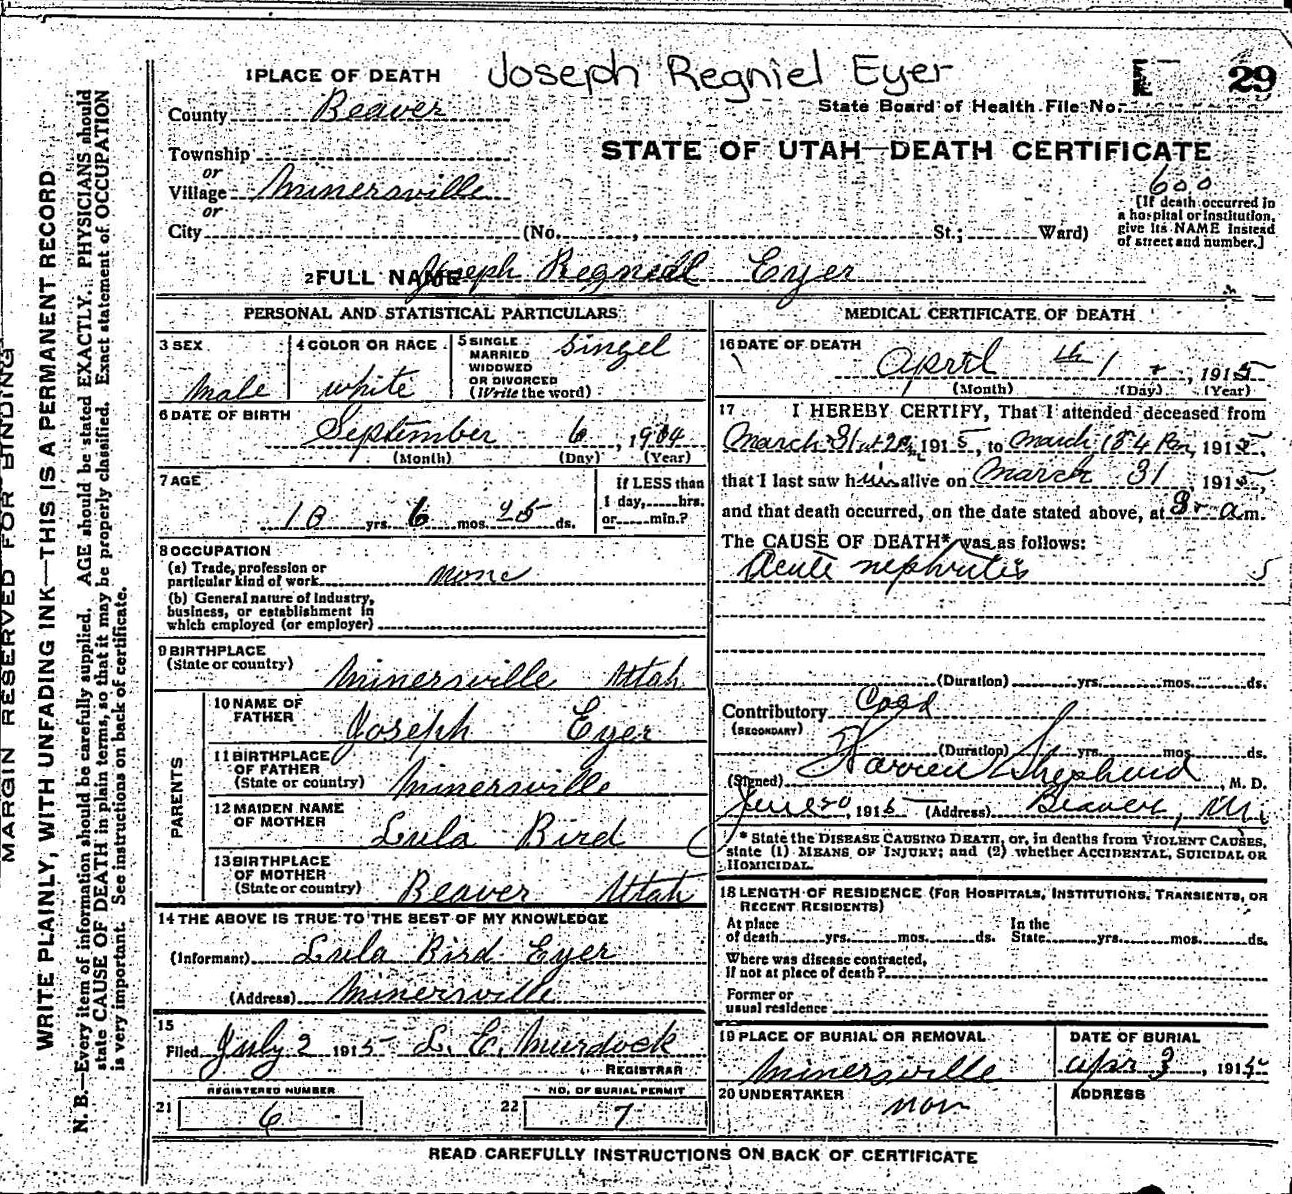 Joseph Regniel Eyer
29
1 PLACE OF DEATH
State Board of Health File No.
County Beaver
STATE OF UTAH—DEATH CERTIFICATE
Township
or
Village Minersville
or
City (No. , St.; Ward)
600
[If death occurred in
a hospital or institution,
give its NAME instead
of street and number.]
2 FULL NAME Joseph Regniell Eyer
PERSONAL AND STATISTICAL PARTICULARS
3 SEX
male
4 COLOR OR RACE
white
5 SINGLE
MARRIED
WIDOWED
OR DIVORCED
(Write the word)
Singel
6 DATE OF BIRTH
September 6, 1904
(Month) (Day) (Year)
7 AGE
10 yrs. 6 mos. 25 ds.
if LESS than
1 day, hrs.
or min.?
8 OCCUPATION
(a) Trade, profession or
particular kind of work none
(b) General nature of industry,
business, or establishment in
which employed (or employer)
9 BIRTHPLACE
(State or country) Minersville Uttah
PARENTS
10 NAME OF
FATHER Joseph Eyer
11 BIRTHPLACE
OF FATHER
(State or country) Minersville
12 MAIDEN NAME
OF MOTHER Lula Bird
13 BIRTHPLACE
OF MOTHER
(State or country) Beaver Uttah
14 THE ABOVE IS TRUE TO THE BEST OF MY KNOWLEDGE
(Informant) Lula Bird Eyer
(Address) Minersville
15
Filed July 2 1915 L. E. Murdock
REGISTRAR
REGISTERED NUMBER
21 6
NO. OF BURIAL PERMIT
22 7
MEDICAL CERTIFICATE OF DEATH
16 DATE OF DEATH
April 1, 1915
(Month) (Day) (Year)
17 I HEREBY CERTIFY, That I attended deceased from
March 31 1915, to March 1915,
that I last saw him alive on March 31, 1915,
and that death occurred, on the date stated above, at 8 a m.
The CAUSE OF DEATH* was as follows:
Acute nephritis
(Duration) yrs. mos. ds.
Contributory Cold
(SECONDARY)
(Duration) yrs. mos. ds.
(Signed) Warren Shepherd, M. D.
June 30, 1915 (Address) Beaver,
* State the DISEASE CAUSING DEATH, or, in deaths from VIOLENT CAUSES,
state (1) MEANS OF INJURY; and (2) whether ACCIDENTAL, SUICIDAL OR
HOMICIDAL.
18 LENGTH OF RESIDENCE (FOR HOSPITALS, INSTITUTIONS, TRANSIENTS, OR
RECENT RESIDENTS)
At place
of death yrs. mos. ds.
In the
State yrs. mos. ds.
Where was disease contracted,
if not at place of death?
Former or
usual residence
19 PLACE OF BURIAL OR REMOVAL
Minersville
DATE OF BURIAL
Apr 3, 1915
20 UNDERTAKER
non
ADDRESS
READ CAREFULLY INSTRUCTIONS ON BACK OF CERTIFICATE
MARGIN RESERVED FOR BINDING
WRITE PLAINLY, WITH UNFADING INK—THIS IS A PERMANENT RECORD.
N. B.—Every item of information should be carefully supplied. AGE should be stated EXACTLY. PHYSICIANS should
state CAUSE OF DEATH in plain terms, so that it may be properly classified. Exact statement of OCCUPATION
is very important. See instructions on back of certificate.